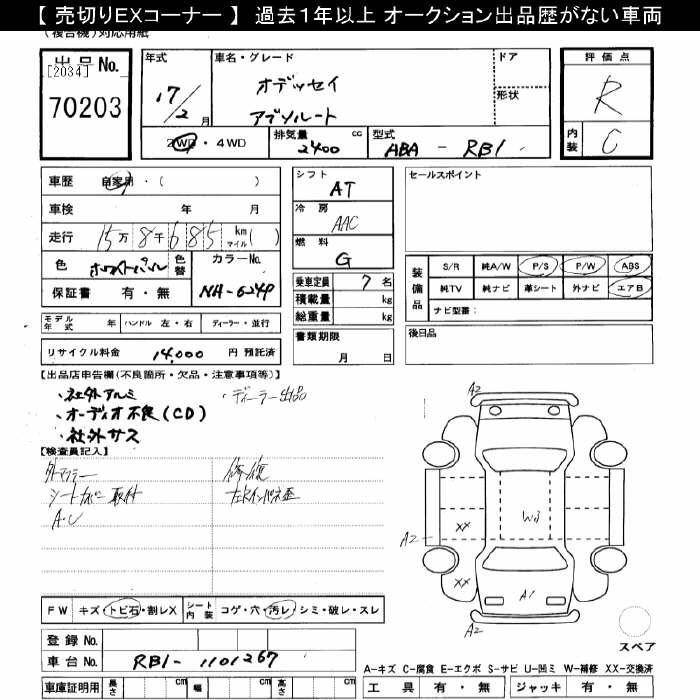 【 売切りEXコーナー 】 過去1年以上 オークション出品歴がない車両
(複合機)対応用紙
出品 No.
[2034]
70203
年式
17/2月
車名・グレード
オデッセイ
アブソルート
ドア
形状
評価点
R
内装
C
2WD・4WD
排気量 cc
2400
型式
ABA - RB1
車歴 自家用・( )
車検 年 月
走行 15万8千685 km マイル( )
色 ホワイトパール
色替
カラーNo.
NH-624P
保証書 有・無
モデル年式 年
ハンドル 左・右
ディーラー・並行
リサイクル料金 14,000 円 預託済
シフト
AT
冷房
AAC
燃料
G
乗車定員 7 名
積載量 kg
総重量 kg
書類期限
月 日
セールスポイント
装備品
S/R 純A/W P/S P/W ABS
純TV 純ナビ 革シート 外ナビ エアB
ナビ型番:
後日品
【出品店申告欄(不良箇所・欠品・注意事項等)】
・社外アルミ
・ディーラー出品
・オーディオ不良(CD)
・社外サス
【検査員記入】
外マフラー
修復
シートカバー取付
A・C
FW キズ・トビ石・割レX
シート内装 コゲ・穴・汚レ・シミ・破レ・スレ
登録 No.
車台 No. RB1-1101267
車庫証明用 長さ cm 幅 cm 高さ cm
A2
A2
XX
XX
W3
A1
A2
スペア
A-キズ C-腐食 E-エクボ S-サビ U-凹ミ W-補修 XX-交換済
工具 有・無 ジャッキ 有・無